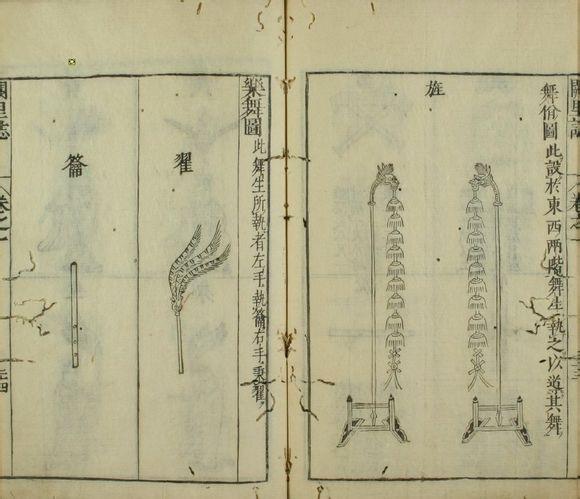 闕里誌
卷之
舞佾圖 此設於東西兩階舞生執之以道其舞
旌
樂舞圖 此舞生所執者左手執籥右手秉翟
翟
籥
闕里誌
卷之一